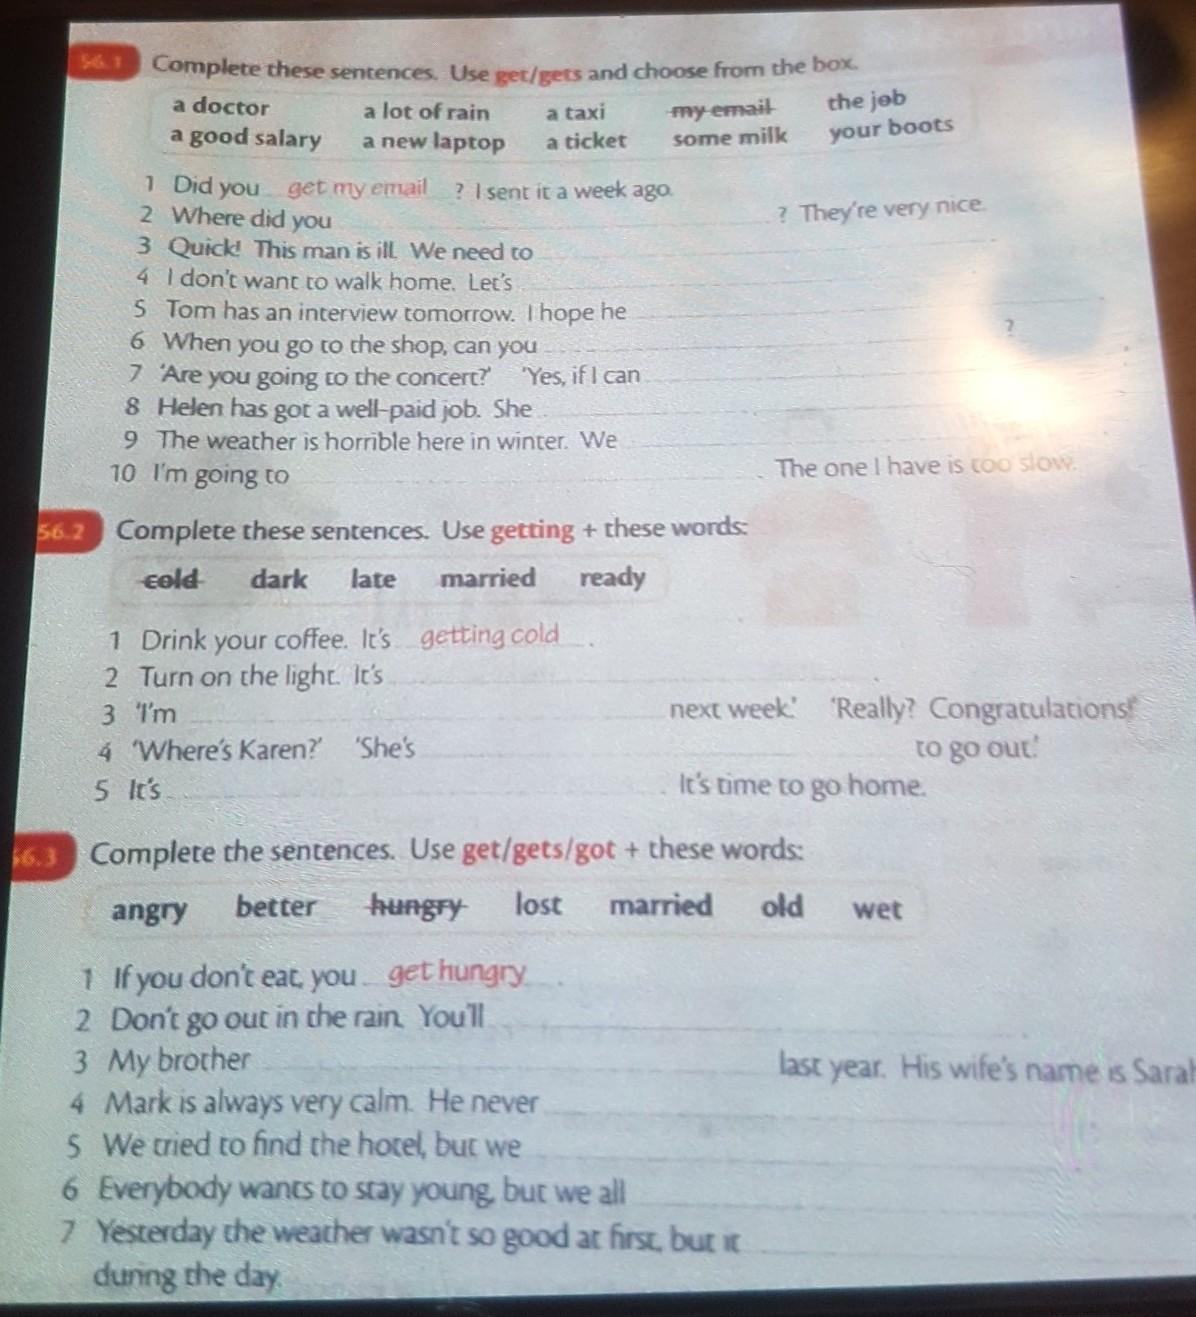 56.1 Complete these sentences. Use get/gets and choose from the box.
a doctor a lot of rain a taxi my email the job
a good salary a new laptop a ticket some milk your boots
1 Did you get my email ? I sent it a week ago.
2 Where did you ? They're very nice.
3 Quick! This man is ill. We need to
4 I don't want to walk home. Let's
5 Tom has an interview tomorrow. I hope he
6 When you go to the shop, can you ?
7 'Are you going to the concert?' 'Yes, if I can
8 Helen has got a well-paid job. She
9 The weather is horrible here in winter. We
10 I'm going to . The one I have is too slow.
56.2 Complete these sentences. Use getting + these words:
cold dark late married ready
1 Drink your coffee. It's getting cold .
2 Turn on the light. It's .
3 'I'm next week.' 'Really? Congratulations!'
4 'Where's Karen?' 'She's to go out.'
5 It's . It's time to go home.
56.3 Complete the sentences. Use get/gets/got + these words:
angry better hungry lost married old wet
1 If you don't eat, you get hungry .
2 Don't go out in the rain. You'll .
3 My brother last year. His wife's name is Sarah
4 Mark is always very calm. He never
5 We tried to find the hotel, but we
6 Everybody wants to stay young, but we all
7 Yesterday the weather wasn't so good at first, but it
during the day.